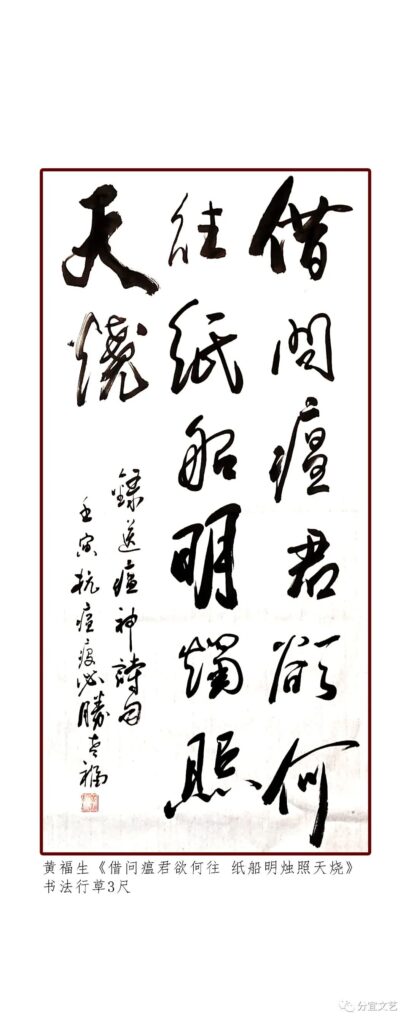 借問瘟君欲何
往紙船明燭照
天燒
錄送瘟神詩句
壬寅抗瘟疫必勝 福
黄福生《借问瘟君欲何往 纸船明烛照天烧》
书法行草3尺
分宜文艺